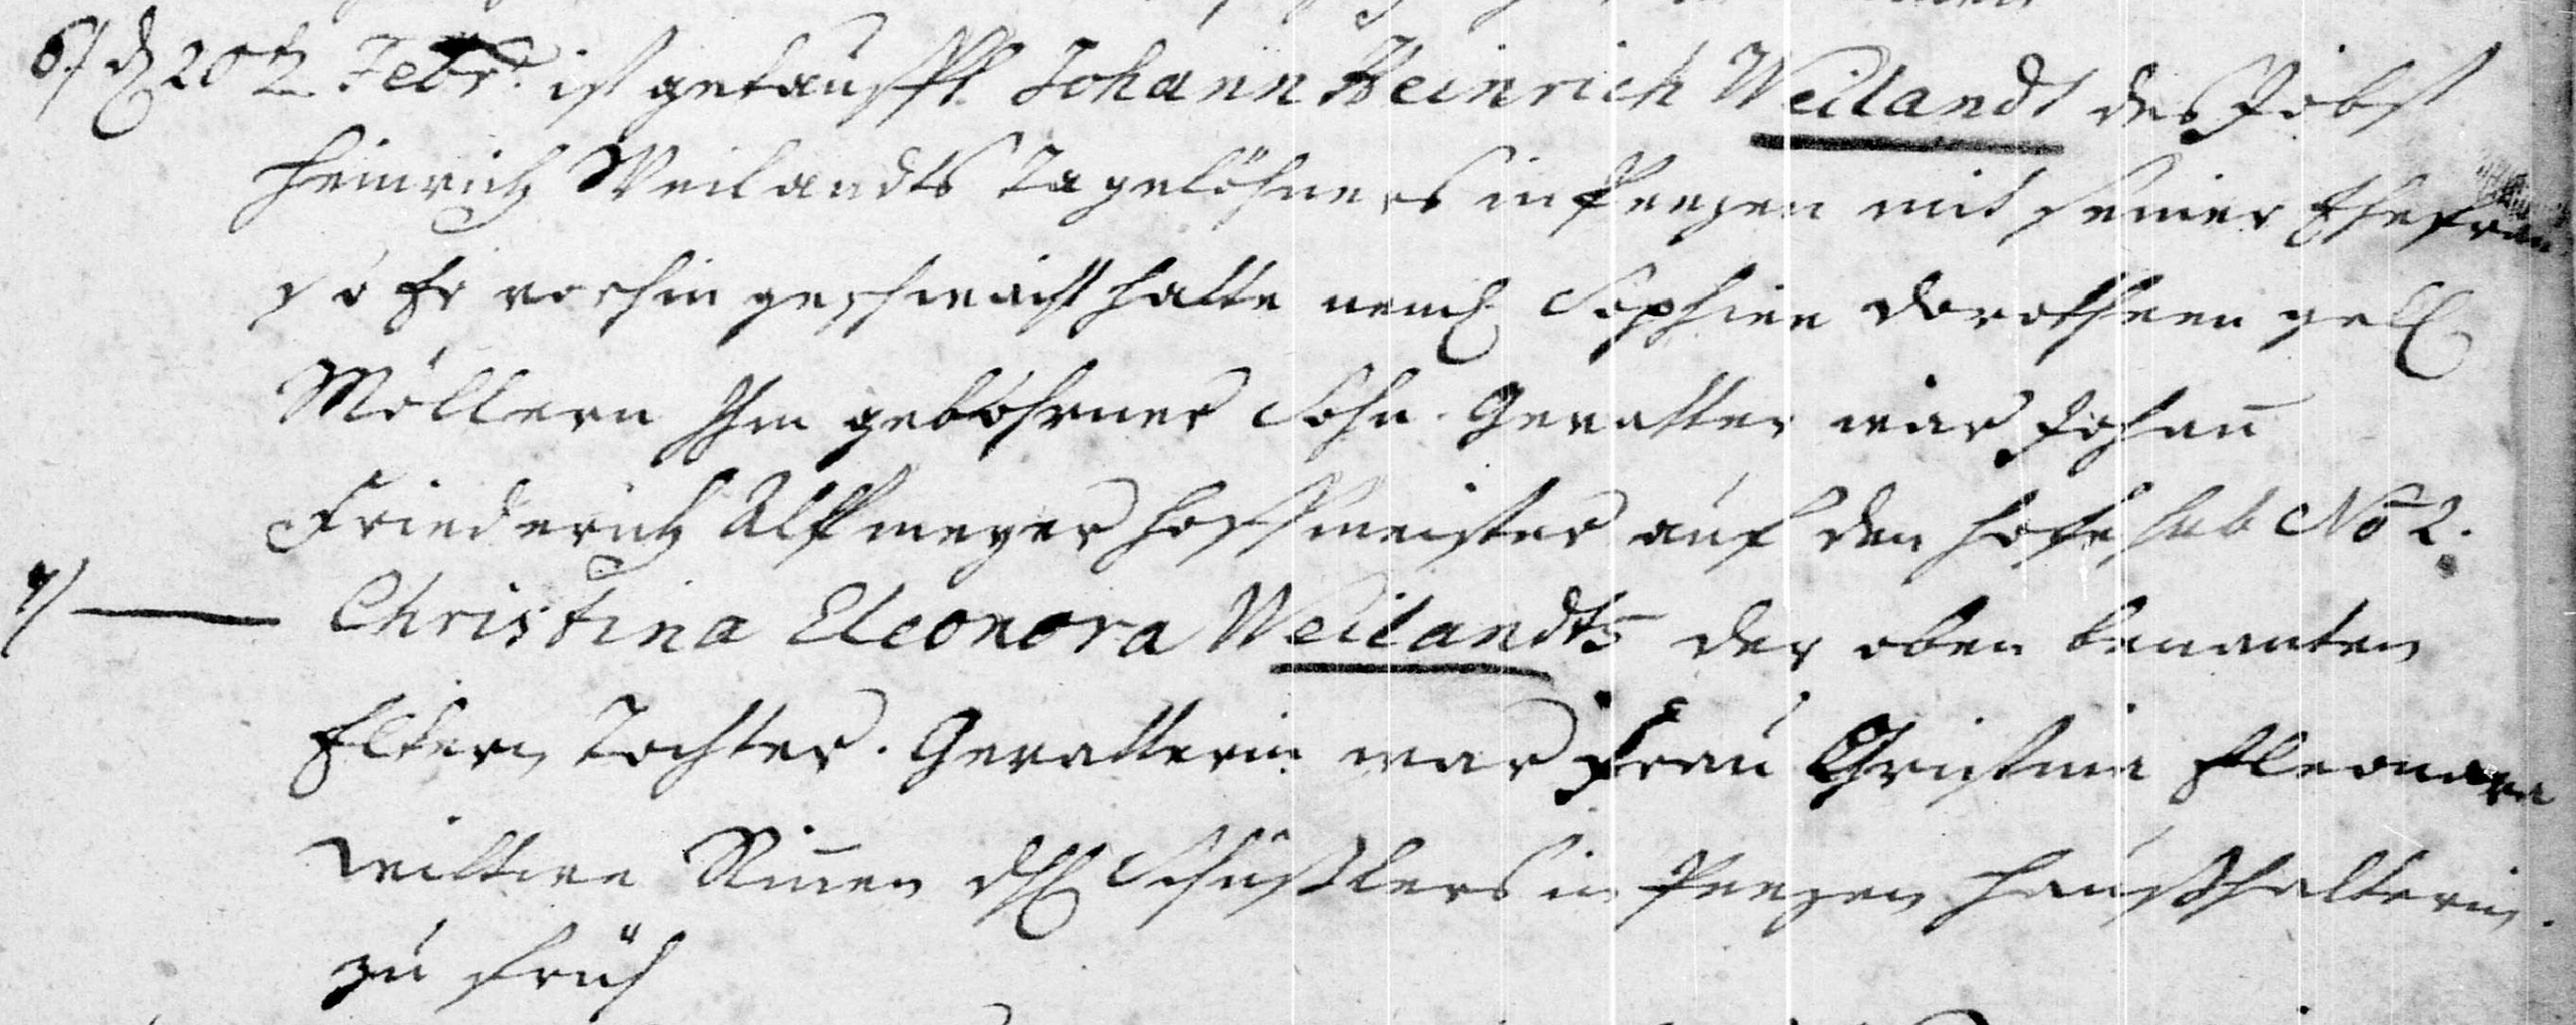 6/ d 20t. Febr. ist getaufft Johann Heinrich Weilandt des Jobst
Heinrich Weilandts Tagelöhners in Peezen mit seiner Ehefrau
so Er vorhin geschwächt hatte neml Sophien Dorotheen geb
Möllern Ihm gebohrner Sohn. Gevatter war Johan̄
Friederich Alffmeyer Hoffmeister auf den Hofe sub No 2.
7/ — Christina Eleonora Weilandts der oben benanten
Eltern Tochter. Gevatterin war Frau Christina Eleonora
in Peezen Haußhalterin.
zu früh